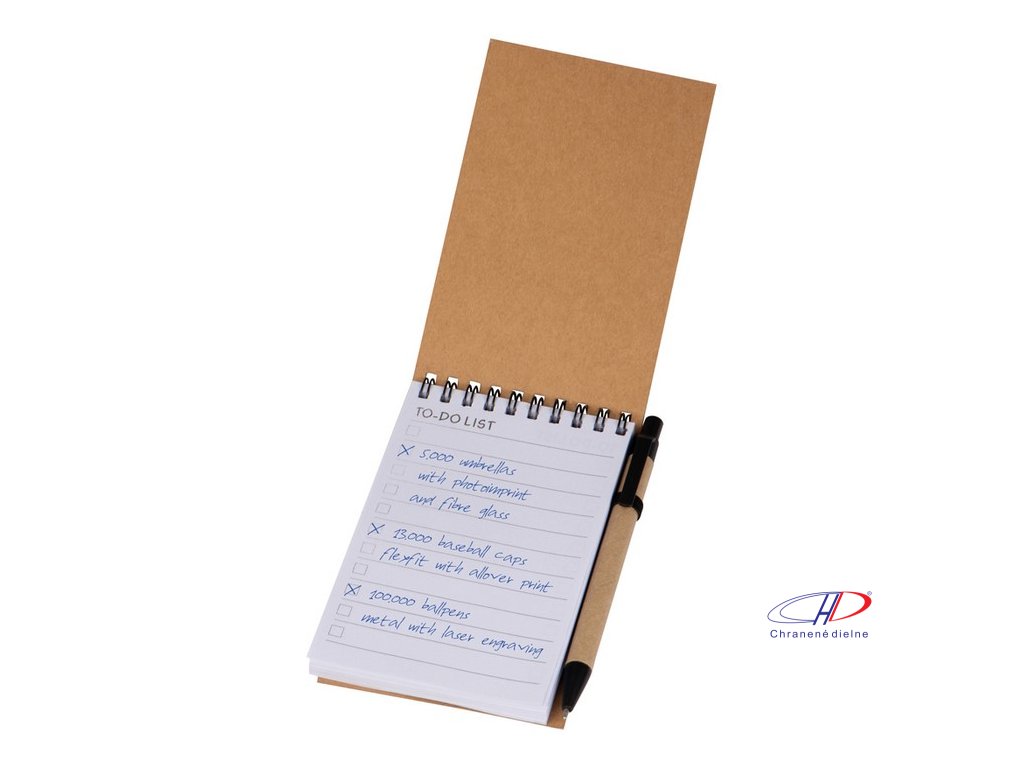 TO-DO LIST
5.000 umbrellas
with photoimprint
and fibre glass
13.000 baseball caps
flexfit with allover print
100.000 ballpens
metal with laser engraving
CHD®
Chranené dielne